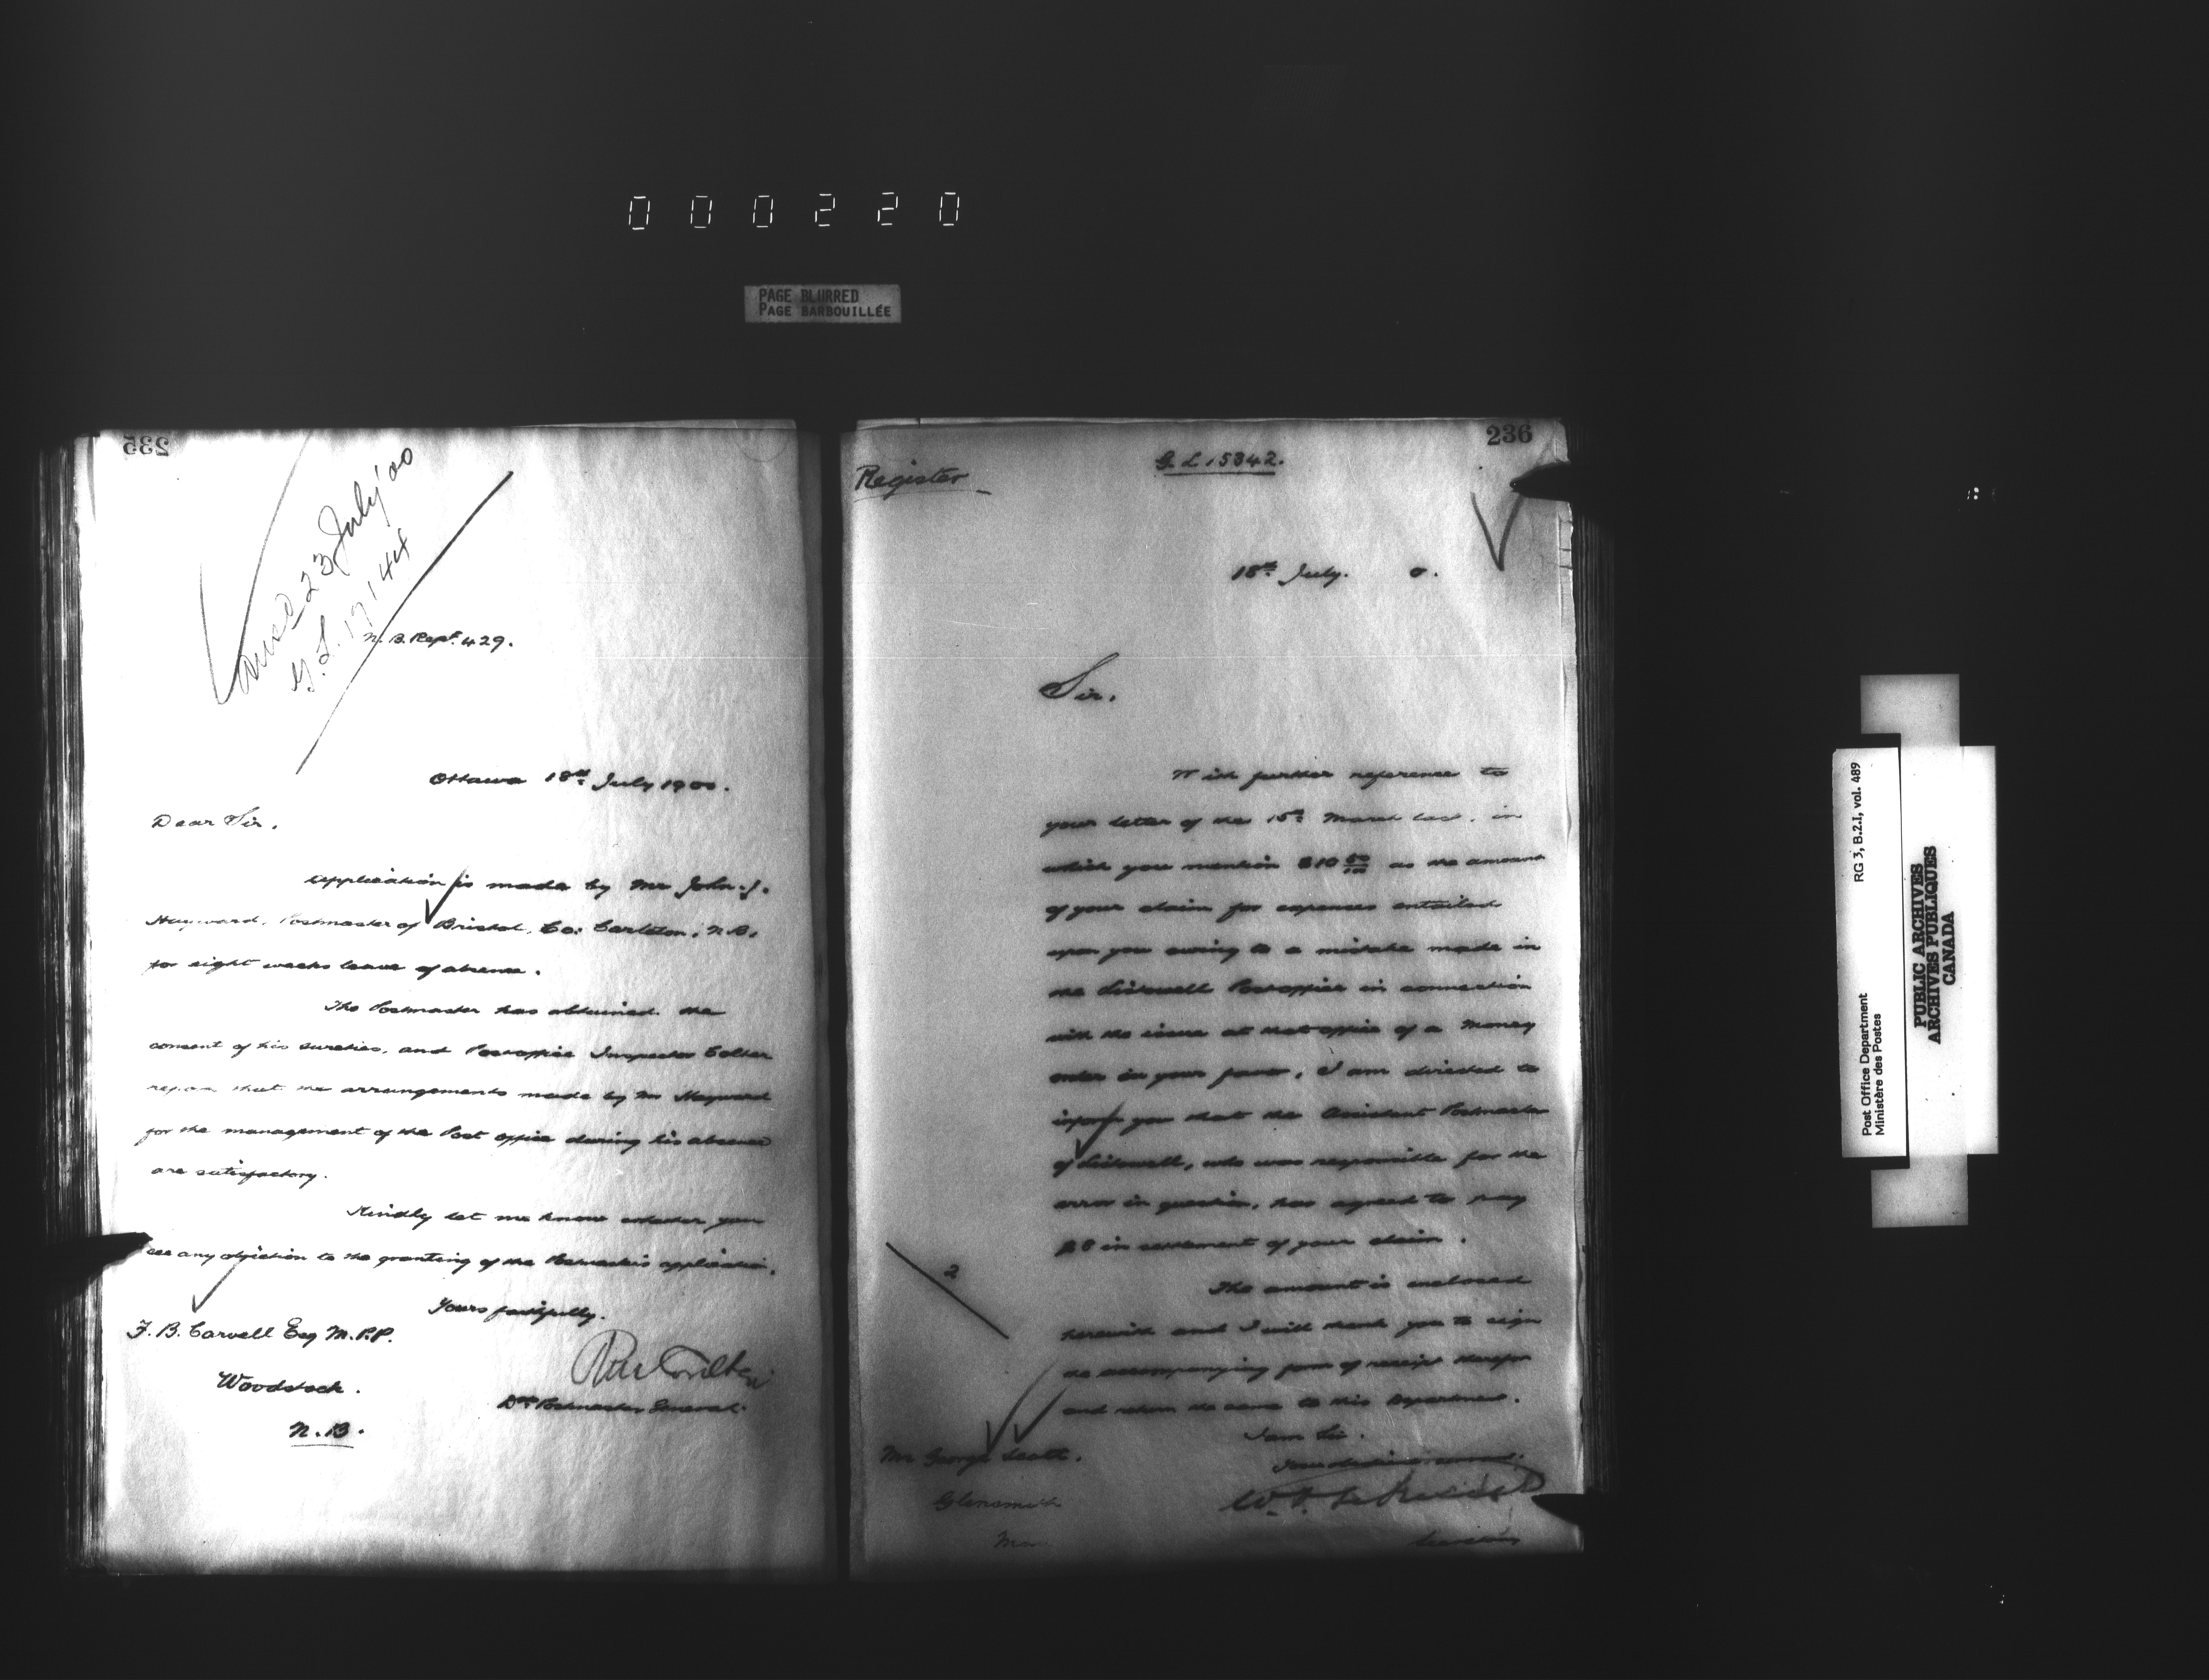 000220
PAGE BLURRED
PAGE BARBOUILLÉE
235
ansd 23 July '00
G.L. 17144
N.B. Rept. 429.
Ottawa 18th July 1900.
Dear Sir,
Application is made by Mr John J.
Hayward, Postmaster of Bristol, Co: Carleton, N.B.
for eight weeks leave of absence.
The Postmaster has obtained the
consent of his sureties, and Post office Inspector Colter
reports that the arrangements made by Mr Hayward
for the management of the Post office during his absence
are satisfactory.
Kindly let me know whether you
see any objection to the granting of the Postmaster's application.
Yours faithfully.
Dy Postmaster General.
F. B. Carvell Esq M.P.P.
Woodstock.
N.B.
236
Register
G.L 15342.
18th July. 0.
Sir,
With further reference to
your letter of the 15th March last, in
which you mention $10 50/100 as the amount
of your claim for expenses entailed
upon you owing to a mistake made in
the Listowell Post office in connection
with the issue at that office of a Money
order in your favor, I am directed to
inform you that the Assistant Postmaster
of Listowell, who was responsible for the
error in question, has agreed to pay
$8 in settlement of your claim.
The amount is enclosed
herewith and I will thank you to sign
the accompanying form of receipt therefor
and return the same to this Department.
I am Sir,
Your obedient servant.
Secretary
2
Mr George
Glensmith
Man
Post Office Department
Ministère des Postes
RG 3, B.2.I, vol. 489
PUBLIC ARCHIVES
ARCHIVES PUBLIQUES
CANADA